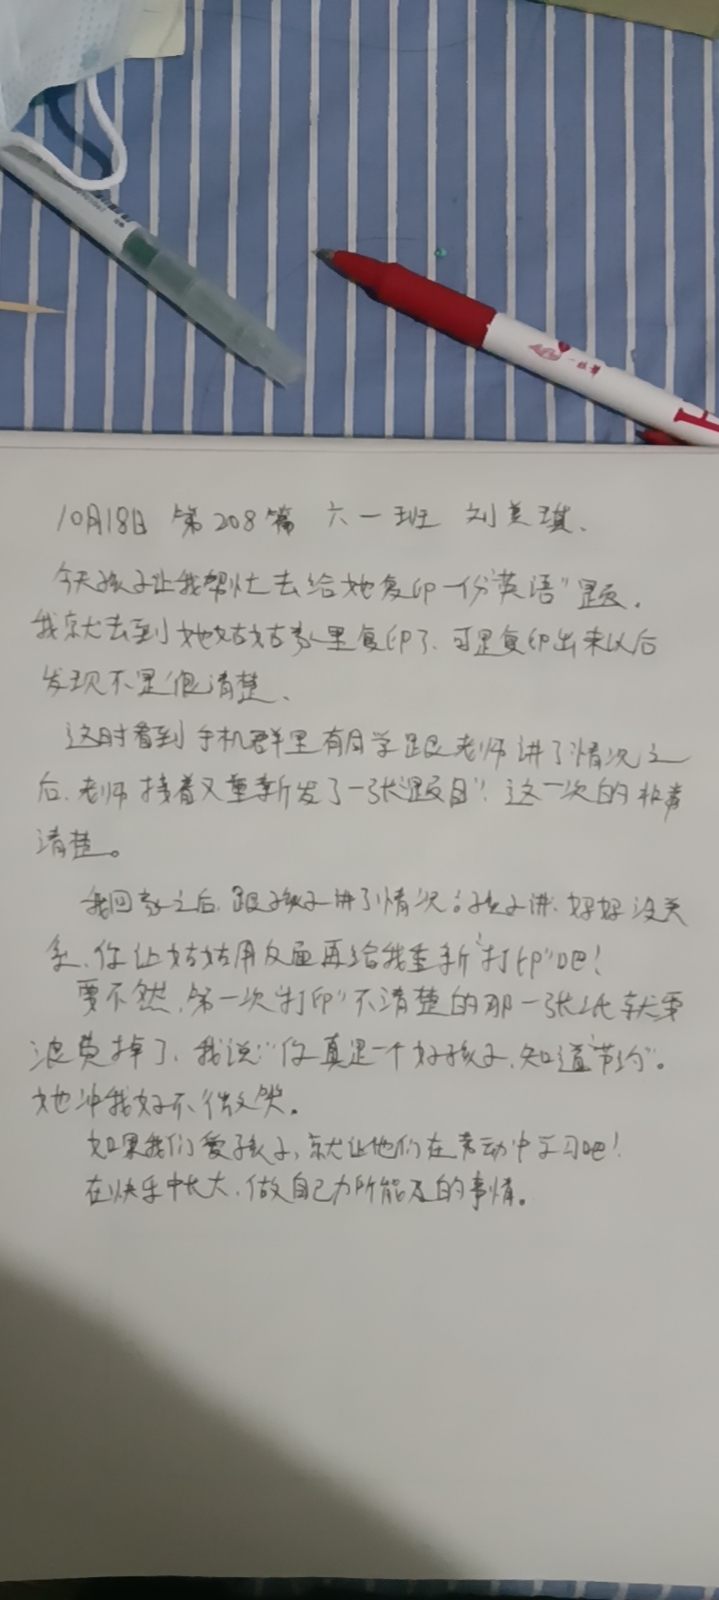 10月18日 第208篇 六一班 刘美琪.
今天孩子让我帮忙去给她复印一份"英语"题.
我就去到她姑姑家里复印了.可是复印出来以后
发现不是很清楚、
这时看到手机群里有同学跟老师讲了情况之
后.老师接着又重新发了一张"题目".这一次的非常
清楚。
我回家之后.跟孩子讲了情况;孩子讲.妈妈没关
系、你让姑姑用反面再给我重新"打印"吧!
要不然.第一次"打印"不清楚的那一张纸就要
浪费掉了.我说:"你真是一个好孩子,知道"节约"。
她冲我好不微笑。
如果我们爱孩子,就让他们在劳动中学习吧!
在快乐中长大.做自己力所能及的事情。